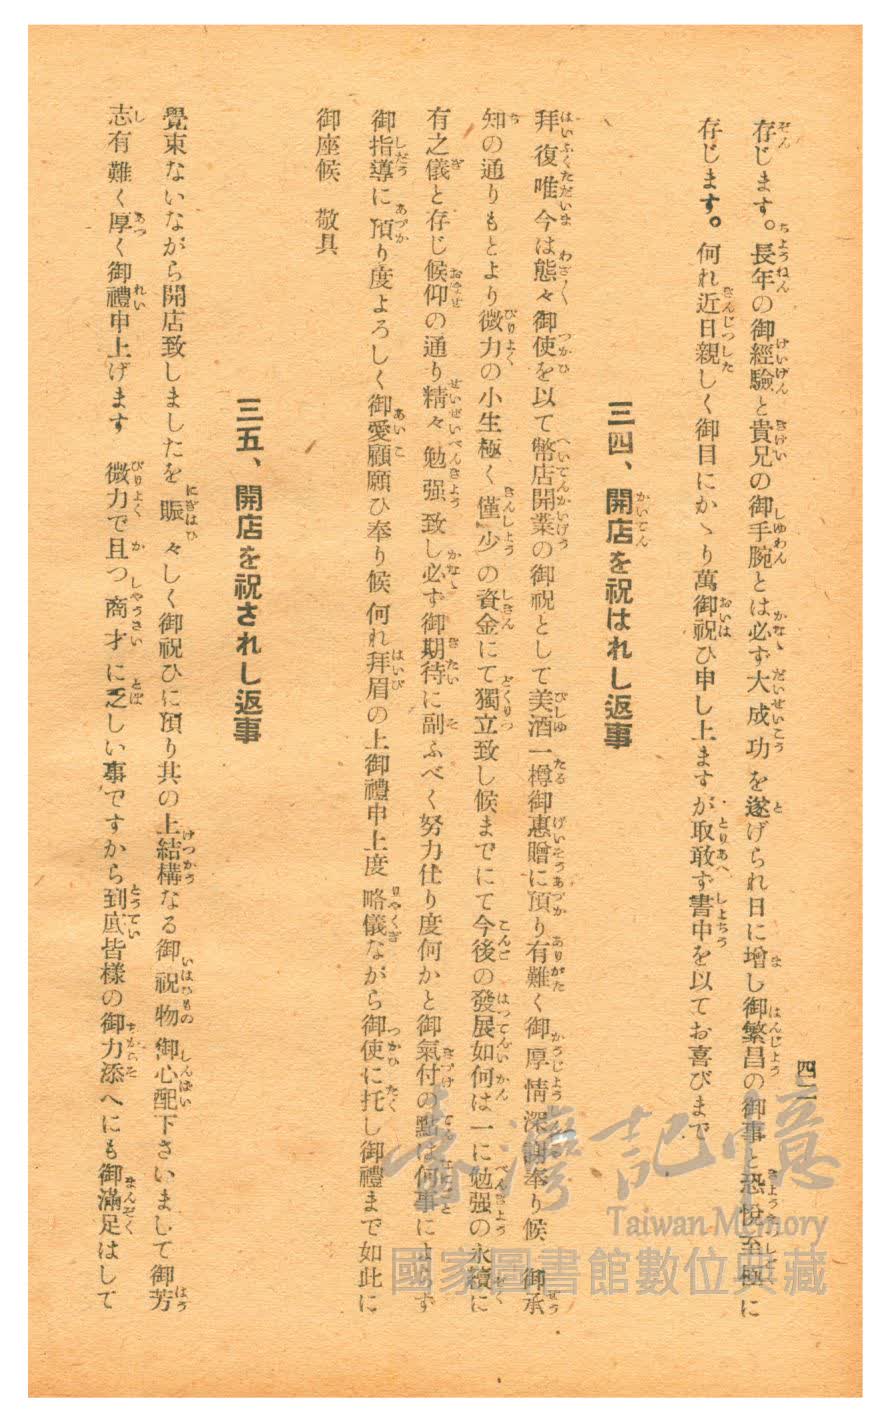 四二
存じます。長年の御經驗と貴兄の御手腕とは必ず大成功を遂げられ日に增し御繁昌の御事と恐悅至極に
存じます。何れ近日親しく御目にかゝり萬御祝ひ申し上ますが取敢ず書中を以てお喜びまで
三四、開店を祝はれし返事
拜復唯今は態々御使を以て幣店開業の御祝として美酒一樽御惠贈に預り有難く御厚情深謝奉り候 御承
知の通りもとより微力の小生極く僅少の資金にて獨立致し候までにて今後の發展如何は一に勉强の永續に
有之儀と存じ候仰の通り精々勉强致し必ず御期待に副ふべく努力仕り度何かと御氣付の點は何事によらず
御指導に預り度よろしく御愛顧願ひ奉り候 何れ拜眉の上御禮申上度 略儀ながら御使に托し御禮まで如此に
御座候 敬具
三五、開店を祝されし返事
覺束ないながら開店致しましたを賑々しく御祝ひに預り其の上結構なる御祝物御心配下さいまして御芳
志有難く厚く御禮申上げます 微力で且つ商才に乏しい事ですから到底皆樣の御力添へにも御滿足はして
臺灣記憶
Taiwan Memory
國家圖書館數位典藏